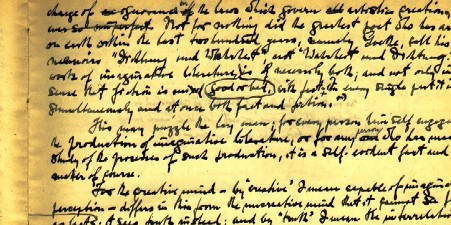 charge of ignorance of the laws which govern all artistic creation,
Not for nothing did the greatest poet who has
on earth within the last two hundred years, namely Goethe, call his
memoirs "Dichtung und Wahrheit", not "Wahrheit und Dichtung".
work of imaginative literature is of necessity both; and not only in
sense that fiction is mixed, good or bad, with fact, in every single part it is
simultaneously and at once both fact and fiction."
This may puzzle the lay man; for every person who engages
the production of imaginative literature, or for any person who has made
study of the process of such production, it is a self-evident fact and
matter of course.
For the creative mind - by "creative" I mean capable of imaginative
perception - differs in this from the uncreative mind that it cannot
facts: it sees truth instead; and by "truth" I mean the interrelation